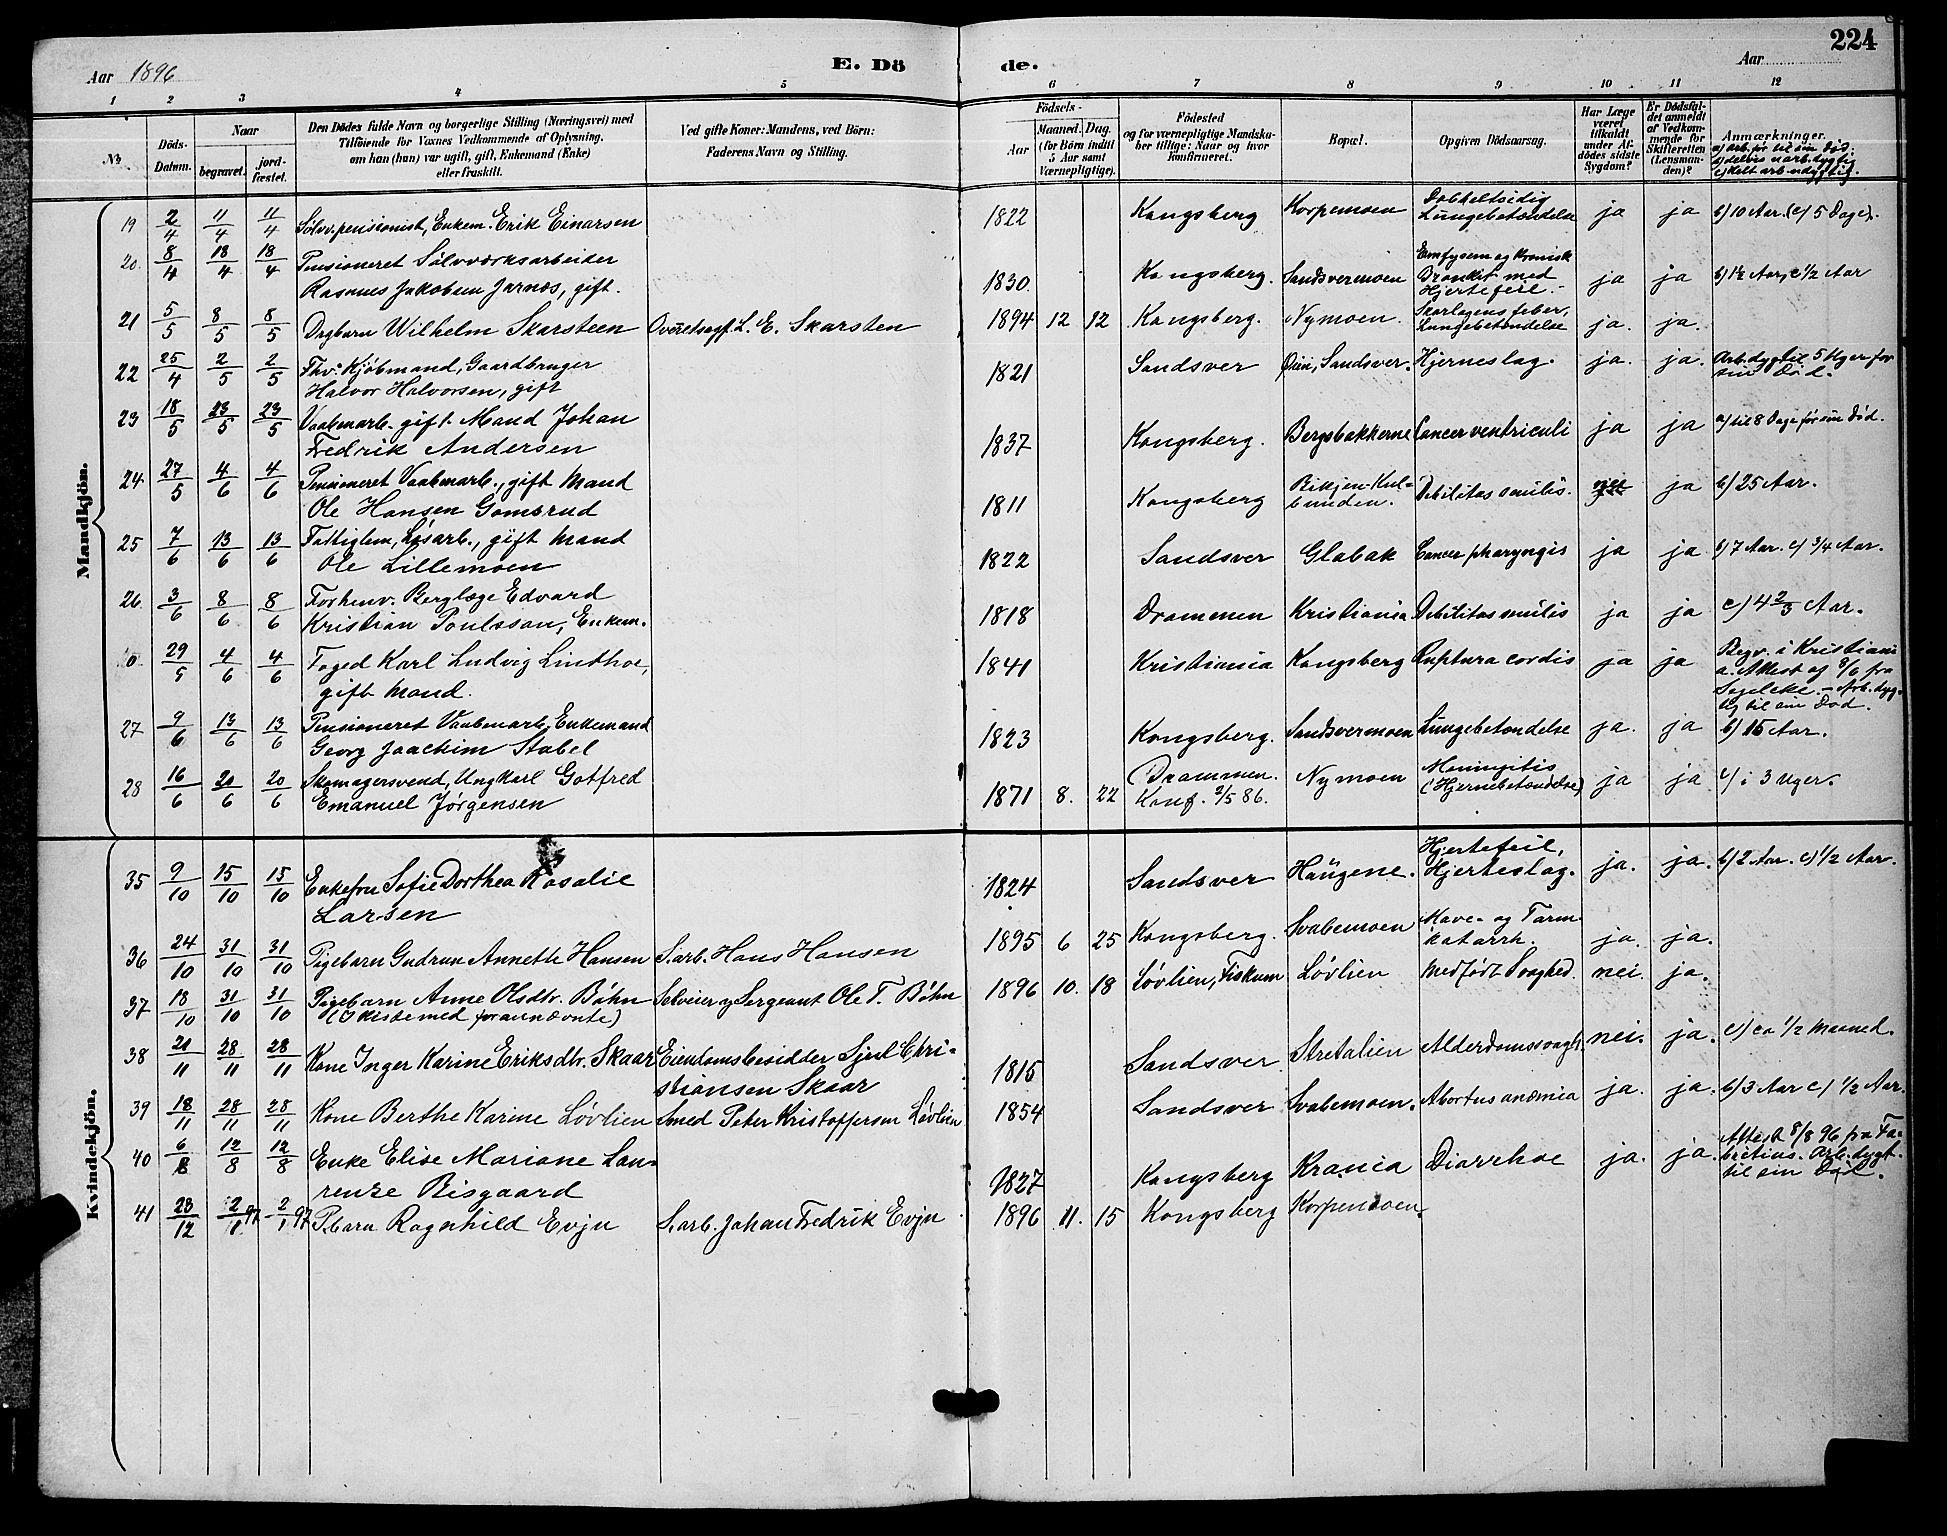 224
Aar 1896 E. Dö de. Aar
1 2 3 4 5 6 7 8 9 10 11 12
No.
Döds-Datum.
Naar
begravet.
jord-fæstet.
Den Dödes fulde Navn og borgerlige Stilling (Næringsvei) med
Tilföiende for Voxnes Vedkommende af Oplysning,
om han (hun) var ugift, gift, Enkemand (Enke)
eller fraskilt.
Ved gifte Koner: Mandens, ved Börn:
Faderens Navn og Stilling.
Födsels-
Aar
Maaned. Dag.
(for Börn indtil
5 Aar samt
Værnepligtige).
Födested
og for værnepligtige Mandska-
ber tillige: Naar og hvor
konfirmeret.
Bopæl.
Opgiven Dödsaarsag.
Har Læge
været
tilkaldt
under Af-
dödes sidste
Sygdom?
Er Dödsfal-
det anmeldt
af Vedkom-
mende for
Skifteretten
(Lensman-
den)?
Anmærkninger.
a) arb.før til sin Død.
b) delvis uarb.dygtig
c) helt arb.udygtig.
Mandkjön.
19 2/4 11/4 11/4 Sølvv.pensionist, Enkem. Erik Einarsen 1822 Kongsberg Korpemoen Dobbeltsidig
Lungebetændelse ja ja b) 10 Aar. (c) 5 Dage).
20. 8/4 18/4 18/4 Pensioneret Sølvværksarbeider
Rasmus Jakobsen Jarnæs, gift. 1830. Kongsberg. Sandsvermoen Emfysem og Kronisk
Bronkit med
Hjertefeil. ja ja b) 1½ Aar, c) ½ Aar
21 5/5 8/5 8/5 Dregbarn Wilhelm Skarsteen Overretssagf. L. E. Skarsten 1894 12 12 Kongsberg. Nymoen. Skarlagensfeber,
Lungebetændelse ja. ja.
22 25/4 2/5 2/5 Fhv. Kjøbmand, Gaardbruger
Halvor Halvorsen, gift 1821 Sandsver Øien, Sandsver. Hjerneslag. ja. ja. Arb.dygtil 5 Uger for
sin Død.
23 18/5 23/5 23/5 Vaabenarb. gift Mand Johan
Fredrik Andersen 1837 Kongsberg. Bergsbakkerne Cancer ventriculi ja ja a) til 8 Dage før sin Død.
24 27/5 4/6 4/6 Pensioneret Vaabenarb., gift Mand
Ole Hansen Gomsrud 1811 Kongsberg Bikjen-Kul-
bunden. Debilitas senilis. nei ja b) 25 Aar.
25 7/6 13/6 13/6 Fattiglem, Løsarb., gift Mand
Ole Lillemoen 1822 Sandsver Glabak Cancer pharyngis ja ja b) 7 Aar. c) 3/4 Aar.
26. 3/6 8/6 8/6 Forhenv. Berglæge Edvard
Kristian Poulsson, Enkem. 1818 Drammen Kristiania Debilitas senilis ja ja c) 4 2/3 Aar.
29/5 4/6 4/6 Foged Karl Ludvig Lindhoe,
gift Mand. 1841 Kristiania Kongsberg Ruptura cordis ja ja Begr. i Kristiani-
a. Attest af 8/6 fra
Arb.dyg-
tig til sin Død.
27 9/6 13/6 13/6 Pensioneret Vaabenarb. Enkemand
Georg Joachim Stabel 1823 Kongsberg. Sandsvermoen Lungebetændelse ja. ja b) 15 Aar.
28 16/6 20/6 20/6 Skomagersvend, Ungkarl Gotfred
Emanuel Jørgensen 1871 8. 22 Drammen.
Konf. 2/5 86. Nymoen Meningitis
(Hjernebetændelse) ja ja c) i 3 Uger.
Kvindekjön.
35 9/10 15/10 15/10 Enkefru Sofie Dorthea Rosalie
Larsen 1824 Sandsver Haugene. Hjertefeil,
Hjerteslag. ja. ja. b) 2 Aar. c) 1/2 Aar.
36 24/10 31/10 31/10 Pigebarn Gudrun Annette Hansen S.arb. Hans Hansen 1895 6 25 Kongsberg. Svabemoen Mave- og Tarm-
katarrh. ja. ja.
37 18/10 31/10 31/10 Pigebarn Anne Olsdtr. Bøhn Selveier og Sergeant Ole T. Bøhn 1896 10. 18 Løvlien, Fiskum Løvlien Medfødt Svaghed. nei ja.
(I Kiste med forannævnte)
38 21/11 28/11 28/11 Kone Inger Karine Eriksdtr. Skaar Eiendomsbesidder Sjul Chri-
stiansen Skaar 1815 Sandsver Stretalien Alderdomssvagh. nei. ja. c) ca 1/2 Maaned.
39 18/11 28/11 28/11 Kone Berthe Karine Løvlien Smed Peter Kristoffersen Løvlien 1854 Sandsver Svabemoen. Abortus anæmia ja. ja. b) 3 Aar c) 1/2 Aar.
40 6/8 12/8 12/8 Enke Elise Mariane Lau-
renze Bisgaard 1827 Kongsberg Krania Diarrhoe ja. ja. Attest 8/8 96 fra Fa-
bricius. Arb.dygt.
til sin Død.
41 28/12 2/1 97 2/1 97 P.barn Ragnhild Evju S.arb. Johan Fredrik Evju 1896 11. 15 Kongsberg Korpemoen.